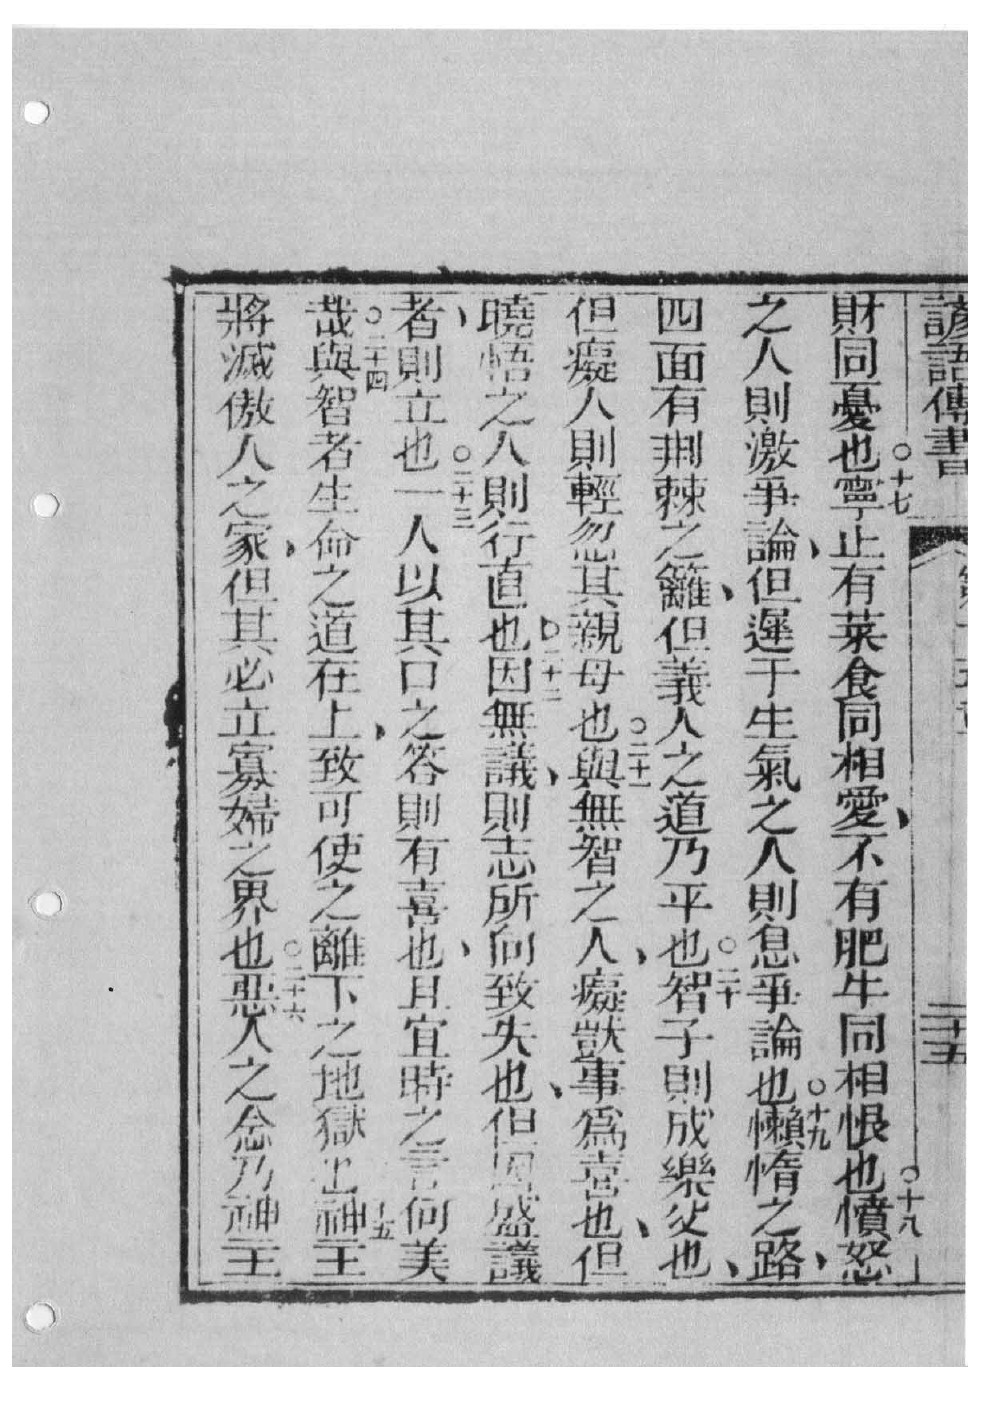 諺語傳書 二十五
財同憂也○十七寧止有菜食同相愛、不有肥牛同相恨也○十八憤怒
之人則激爭論、但遲于生氣之人則息爭論也○十九懶惰之路、
四面有荆棘之籬、但義人之道乃平也○二十智子則成樂父也、
但癡人則輕忽其親母也○二十一與無智之人、癡獃事爲喜也、但
曉悟之人則行直也○二十二因無議、則志所向致失也、但因盛議
者、則立也○二十三一人以其口之答則有喜也、且宜時之言何美
哉○二十四與智者生命之道在上、致可使之離下之地獄也十五神王
將滅傲人之家、但其必立寡婦之界也○二十六惡人之念乃神王